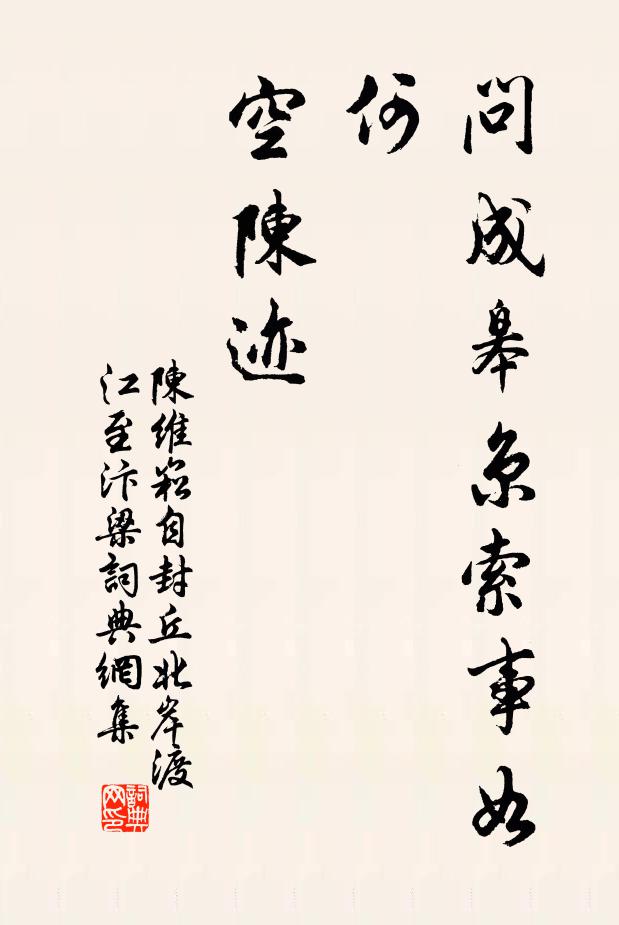 問成皋京索事如
何
空陳迹
陳維崧自封丘北岸渡
江至汴梁詞典網集
詞典
网印